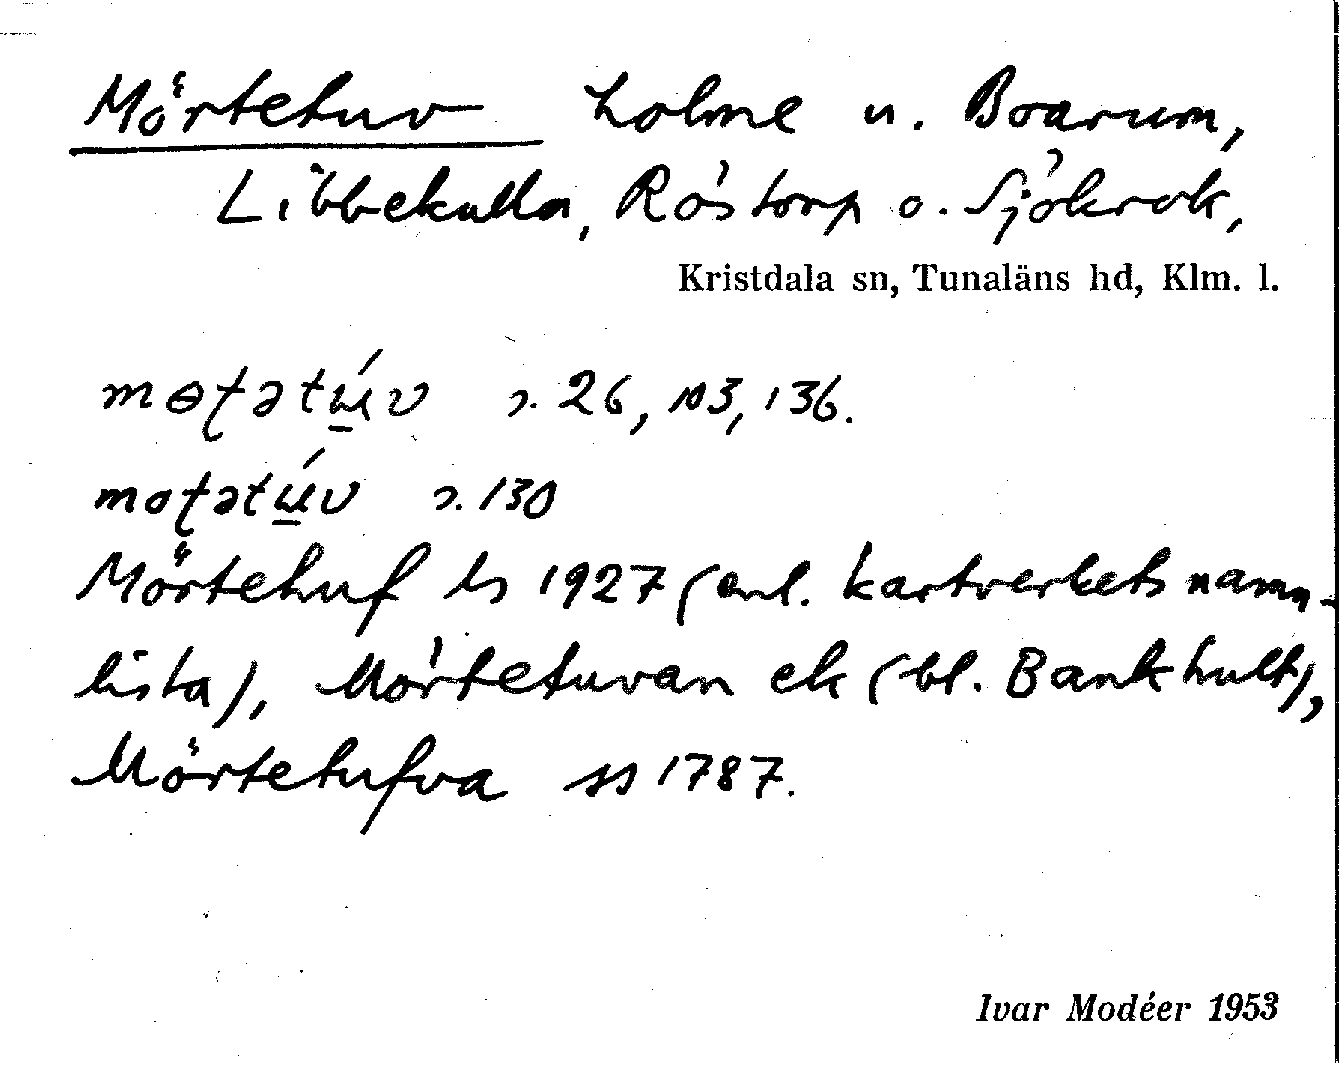 Mörtetuv holme u. Boarum,
Libbekulla, Röstorp o. Sjökrok,
Kristdala sn, Tunaläns hd, Klm. l.
s. 26, 103, 136.
s. 130
Mörtetuf ls 1927 (enl. kartverkets namn-
lista), Mörtetuvan ek (bl. Bankhult),
Mörtetufva ss 1787.
Ivar Modéer 1953